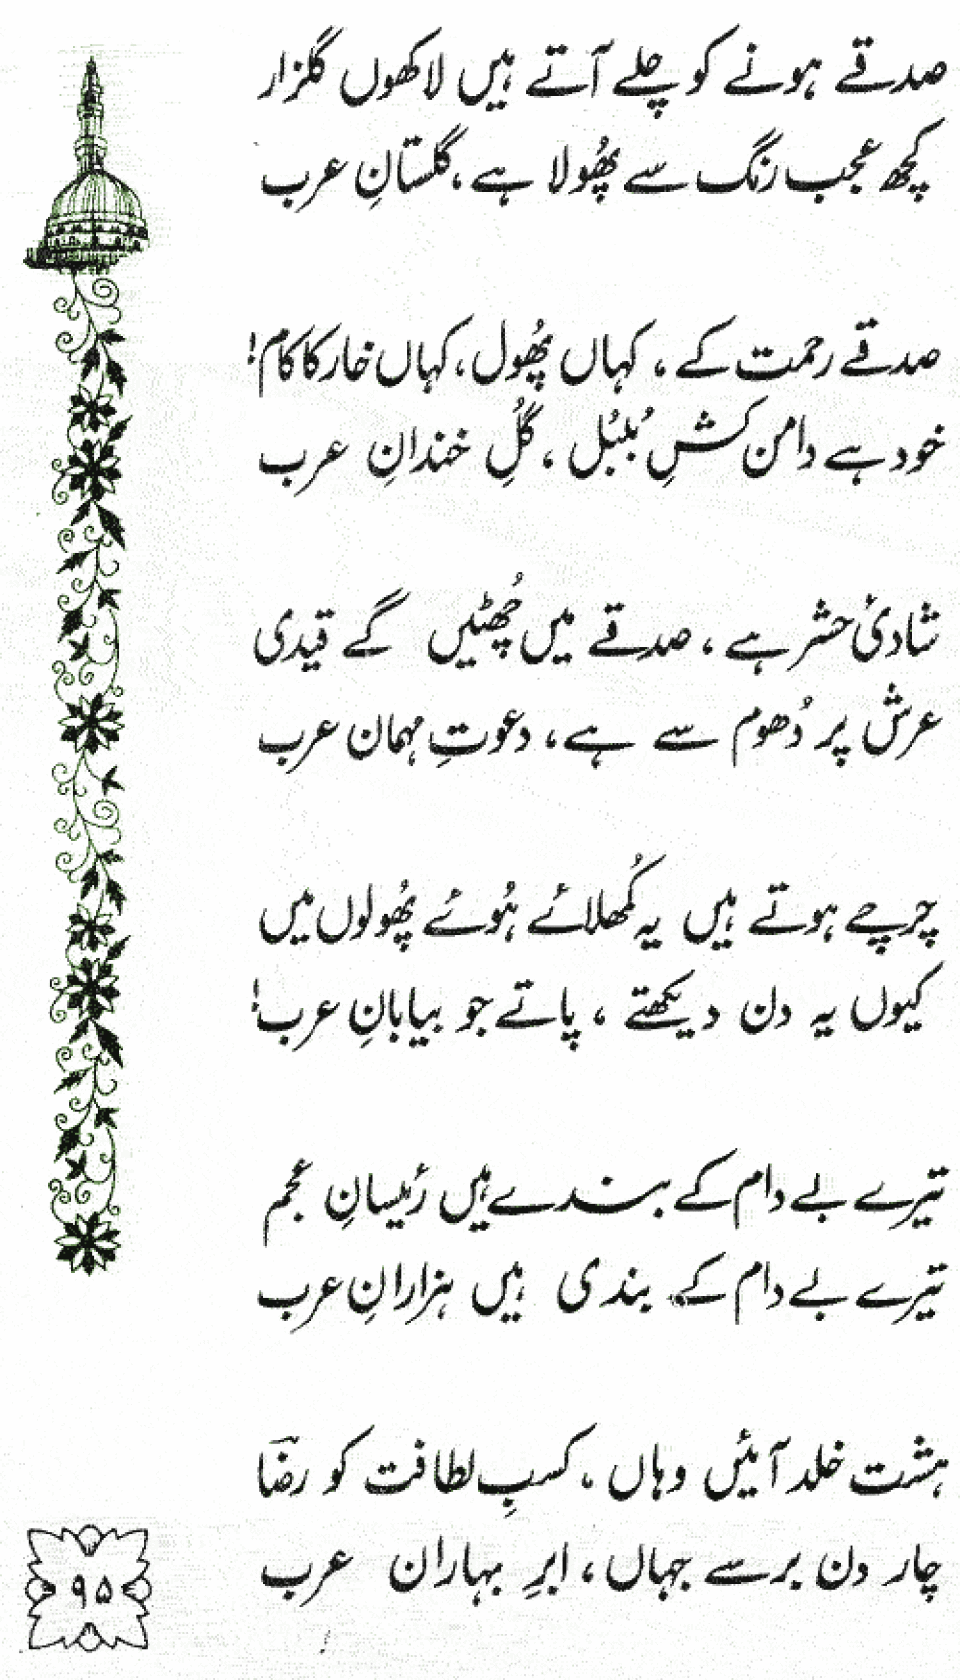 صدقے ہونے کو چلے آتے ہیں لاکھوں گلزار
کچھ عجب رنگ سے پھُولا ہے، گلستانِ عرب
صدقے رحمت کے، کہاں پھُول، کہاں خار کا کام!
خود ہے دامن کشِ بُلبُل، گُلِ خندانِ عرب
شادئ حشر ہے، صدقے میں چھُٹیں گے قیدی
عرش پر دُھوم سے ہے، دعوتِ مہمان عرب
چرچے ہوتے ہیں یہ کُمھلائے ہُوئے پھُولوں میں
کیوں یہ دن دیکھتے، پاتے جو بیابانِ عرب!
تیرے بے دام کے بندے ہیں رئیسانِ عجم
تیرے بے دام کے بندی ہیں ہزارانِ عرب
ہشت خلد آئیں وہاں، کسبِ لطافت کو رضاؔ
چار دن برسے جہاں، ابرِ بہاران عرب
۹۵